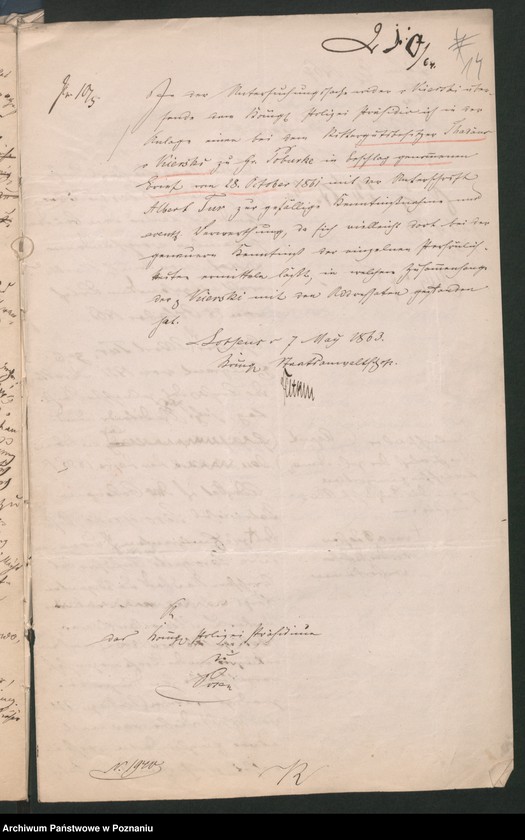 14
Pr 10/5
In der Untersuchungssache wider v Kierski über-
sende dem Königl. Polizei Präsidio ich in der
Anlage einen bei dem Rittergutsbesitzer Thadäus
v Kierski zu in Beschlag genommenen
Brief vom 28. October 1861 mit der Unterschrift
Albert Tur zur gefälligen Kenntnißnahme und
event. Verwerthung, da sich vielleicht dort bei der
genaueren Kenntniß der einzelnen Persönlich-
keiten ermitteln läßt, in welchem Zusammenhange
der p Kierski mit den Adressaten gestanden
hat.
7 May 1863.
Königl. Staatsanwaltschaft.
An
das Königl. Polizei Präsidium
zu
Posen
Archiwum Państwowe w Poznaniu